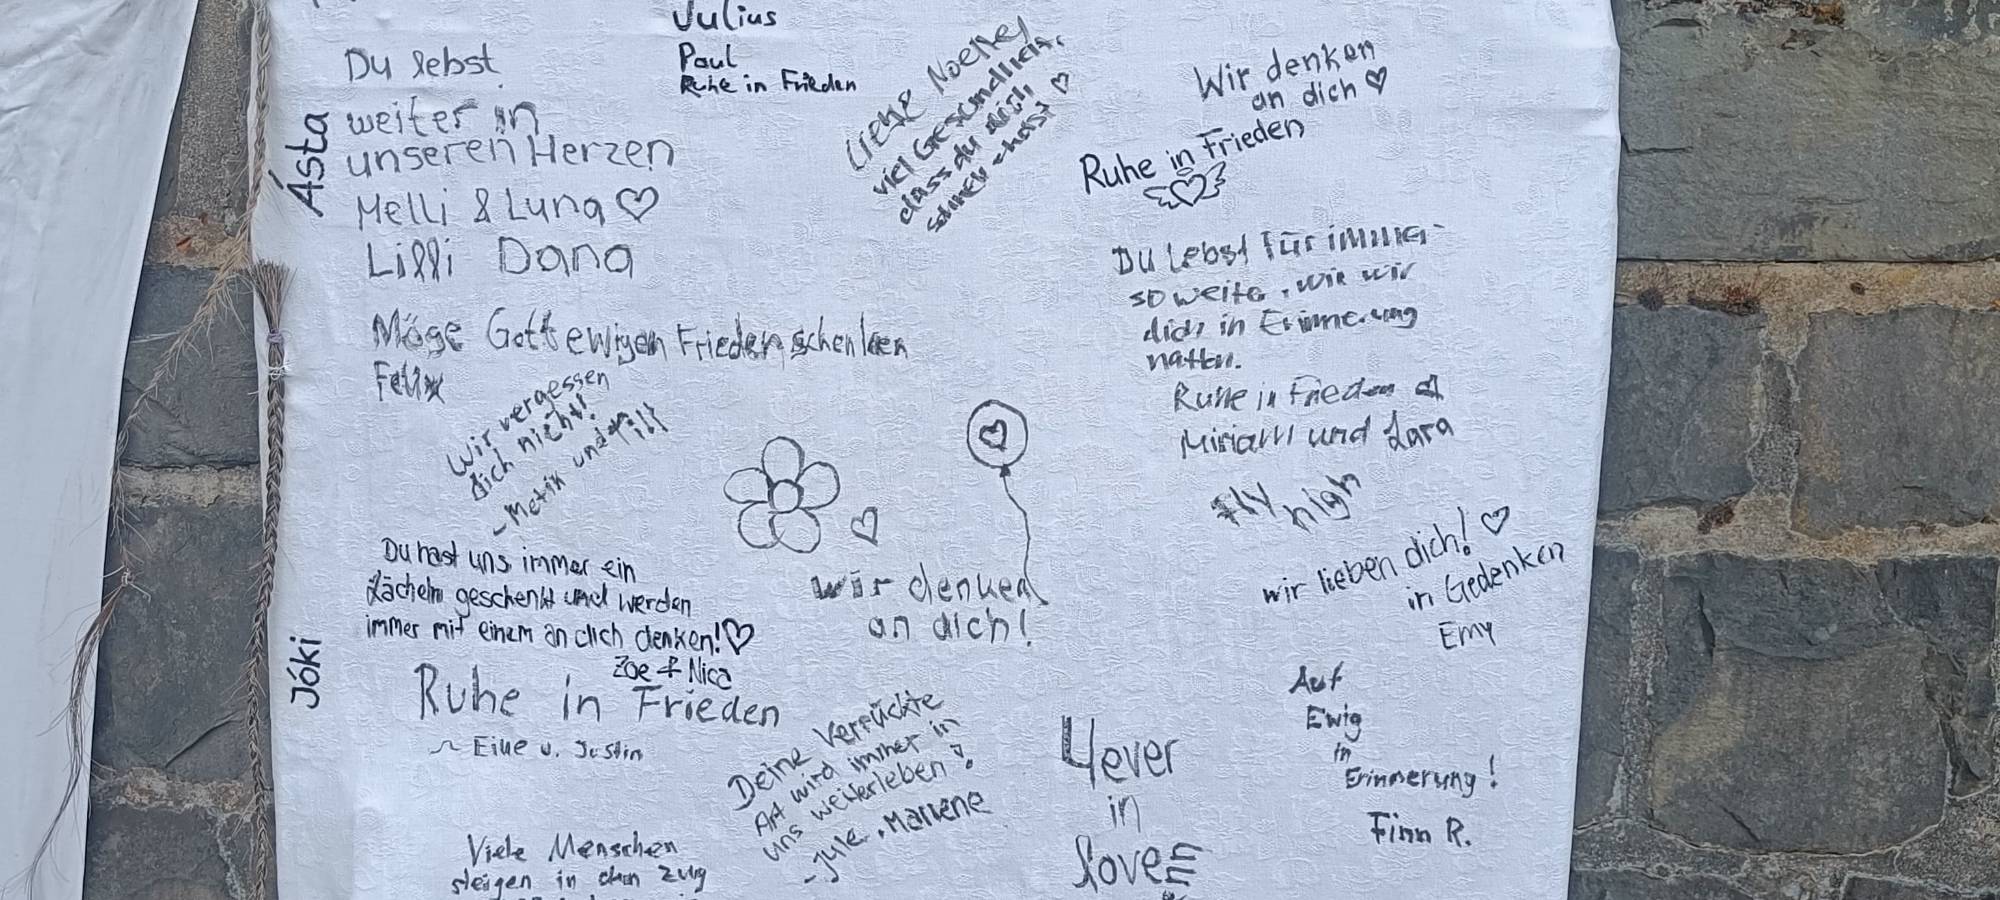 Julius
Paul
Ruhe in Frieden
Du lebst
weiter in
unseren Herzen
Melli & Luna ♡
Lilli Dana
Ásta
Liebe Noelle,
viel Gesundheit
dass du dich
Wir denken
an dich ♡
Ruhe in Frieden
Du lebst für immer
so weiter, wie wir
dich in Erinnerung
hatten.
Ruhe in Frieden
Miriam und Lara
Möge Gott ewigen Frieden schenken
Felix
Wir vergessen
dich nicht!
Fly
high
wir lieben dich! ♡
in Gedenken
Emy
Du hast uns immer ein
Lächeln geschenkt und werden
immer mit einem an dich denken! ♡
Zoe & Nica
wir denken
an dich!
Jóki
Ruhe in Frieden
~ Eike u. Justin
Deine Verrückte
Art wird immer in
uns weiterleben!
- Jule, Marlene
4ever
in
love
Auf
Ewig
in
Erinnerung!
Finn R.
Viele Menschen
steigen in den Zug